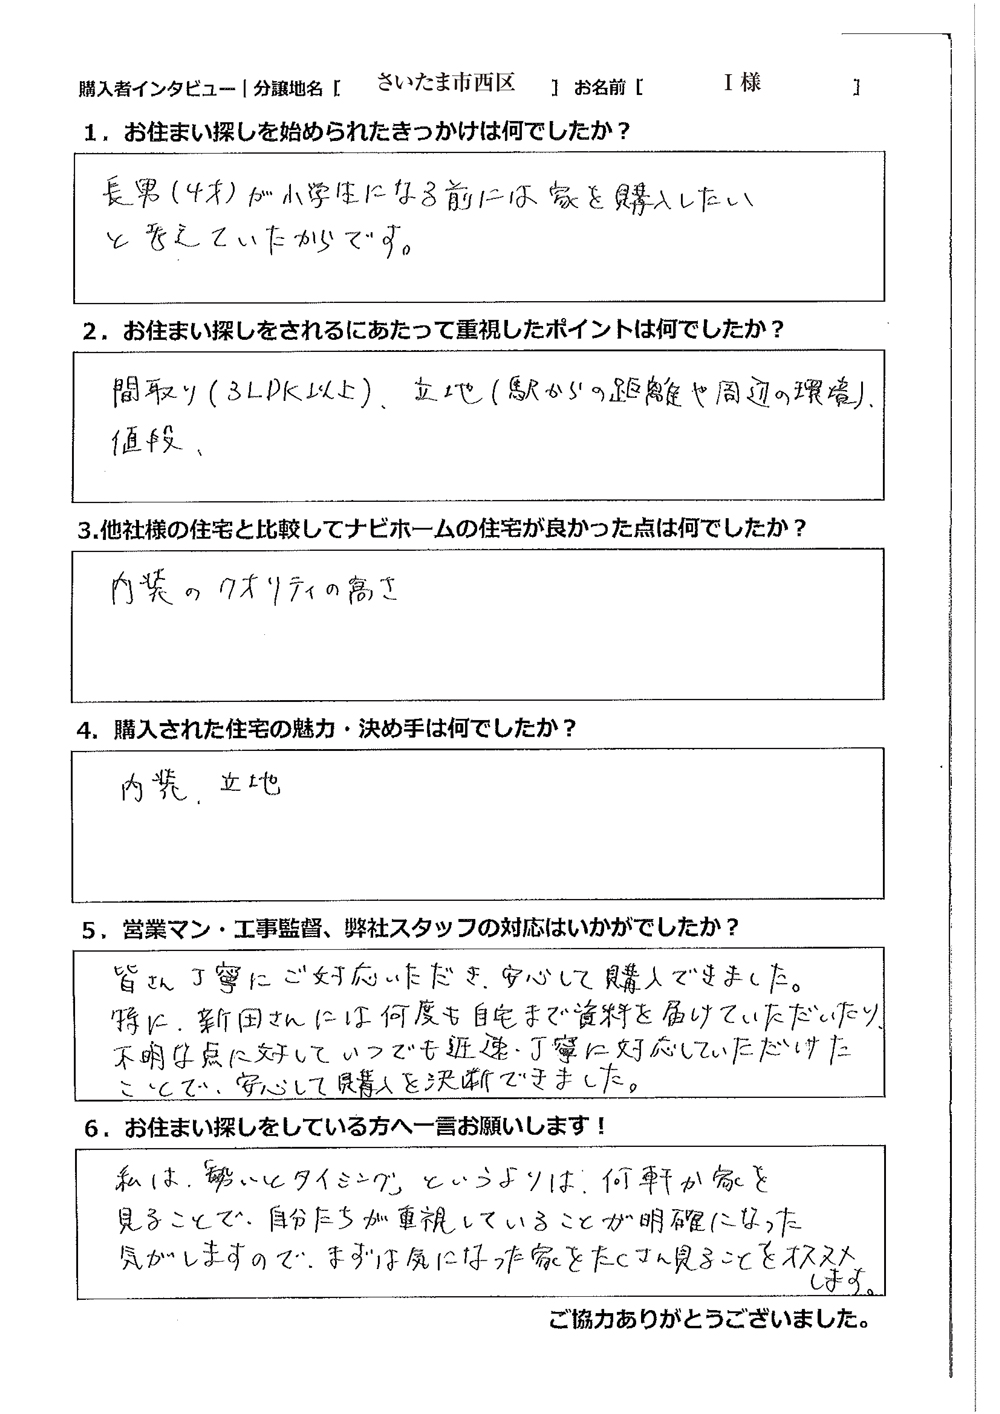 購入者インタビュー｜分譲地名［ さいたま市西区 ］ お名前［ I 様 ］
１．お住まい探しを始められたきっかけは何でしたか？
長男(4才)が小学生になる前には家を購入したい
と考えていたからです。
２．お住まい探しをされるにあたって重視したポイントは何でしたか？
間取り(3LDK以上)、立地(駅からの距離や周辺の環境)、
値段、
3.他社様の住宅と比較してナビホームの住宅が良かった点は何でしたか？
内装のクオリティの高さ
4．購入された住宅の魅力・決め手は何でしたか？
内装、立地
５．営業マン・工事監督、弊社スタッフの対応はいかがでしたか？
皆さん丁寧にご対応いただき、安心して購入できました。
特に、新田さんには何度も自宅まで資料を届けていただいたり、
不明な点に対していつでも迅速・丁寧に対応していただけた
ことで、安心して購入を決断できました。
６．お住まい探しをしている方へ一言お願いします！
私は、「勢いとタイミング」というよりは、何軒か家を
見ることで、自分たちが重視していることが明確になった
気がしますので、まずは気になった家をたくさん見ることをオススメ
します。
ご協力ありがとうございました。